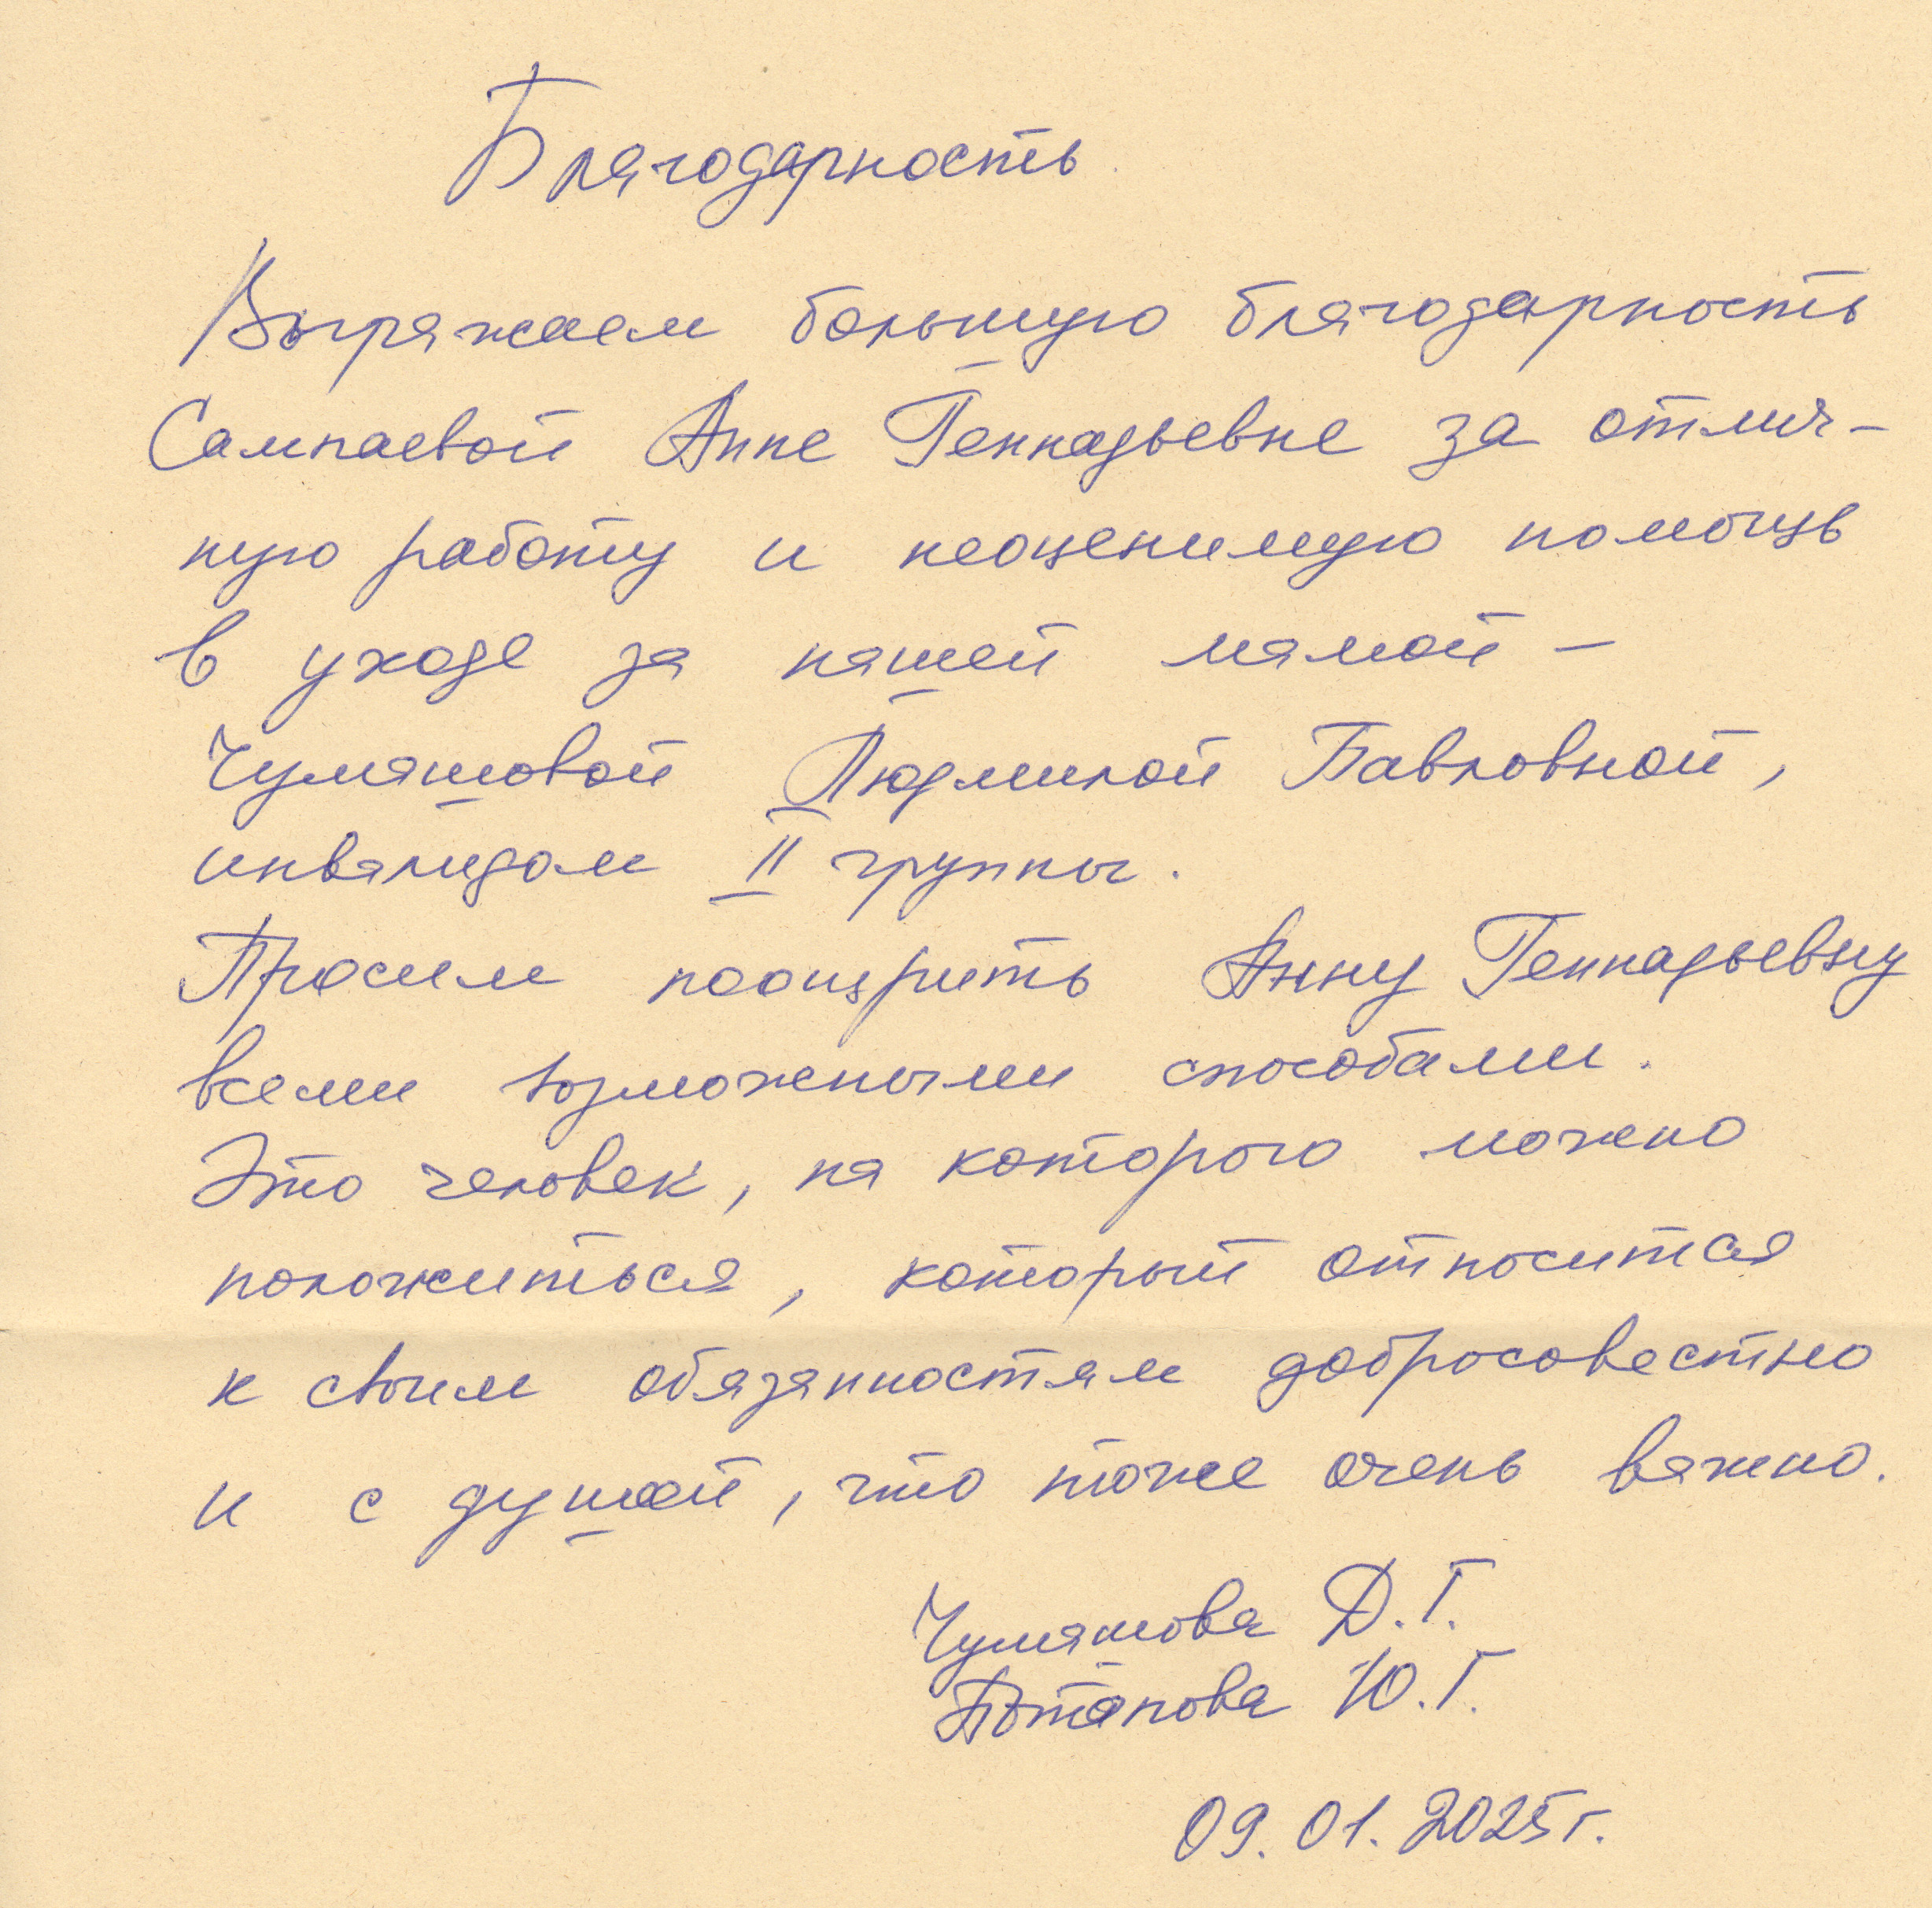 Благодарность
Выражаем большую благодарность
Сампаевой Анне Геннадьевне за отлич-
ную работу и неоценимую помощь
в уходе за нашей мамой –
Чумашовой Людмилой Павловной,
инвалидом II группы.
Просим поощрить Анну Геннадьевну
всеми возможными способами.
Это человек, на которого можно
положиться, который относится
к своим обязанностям добросовестно
и с душой, что тоже очень важно.
Чумашова Д.Г.
Потапова Ю.Г.
09.01.2025г.